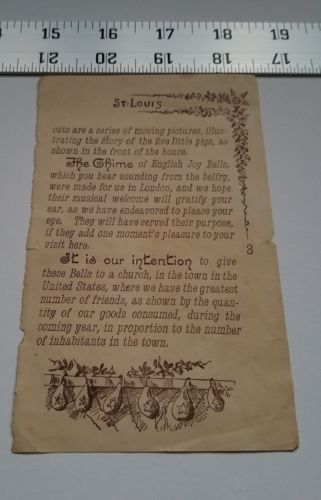 15 16 17 18 19 20 21
St. Louis
cuts are a series of moving pictures, illus-
trating the story of the five little pigs, as
shown in the front of the house.
The Chime of English Joy Bells,
which you hear sounding from the belfry,
were made for us in London, and we hope
their musical welcome will gratify your
ear, as we have endeavored to please your
eye. They will have served their purpose,
if they add one moment's pleasure to your
visit here.
3
It is our intention to give
these Bells to a church, in the town in the
United States, where we have the greatest
number of friends, as shown by the quan-
tity of our goods consumed, during the
coming year, in proportion to the number
of inhabitants in the town.